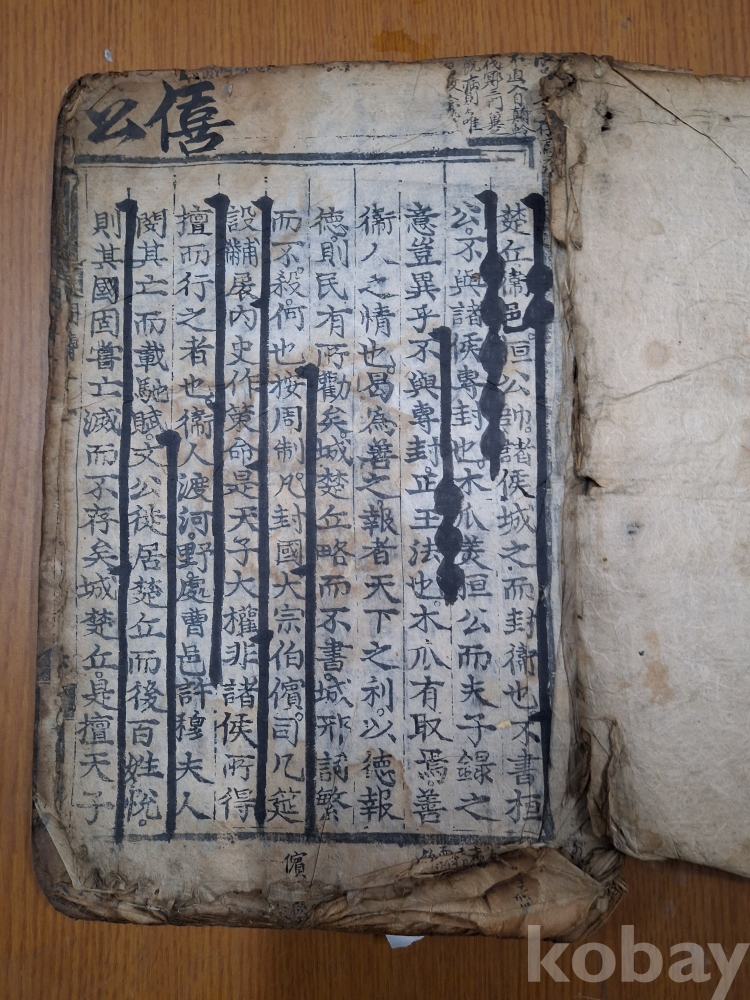 公僖
楚丘衛邑。桓公帥諸侯城之而封衛也不書桓
公。不與諸侯專封也。木瓜美桓公而夫子錄之
意豈異乎不與專封。正王法也。木瓜有取焉。善
衛人之情也。曷為善之報者天下之利。以德報
德則民有所勸矣。城楚丘略而不書。城邢詞繁
而不殺。何也按周制。凡封國大宗伯儐。司几筵
設黼扆內史作策命是天子大權非諸侯所得
擅而行之者也。衛人渡河。野處曹邑許穆夫人
閔其亡而載馳賦。文公徙居楚丘而後百姓悅。
則其國固嘗亡滅而不存矣城楚丘。是擅天子
儐
kobay